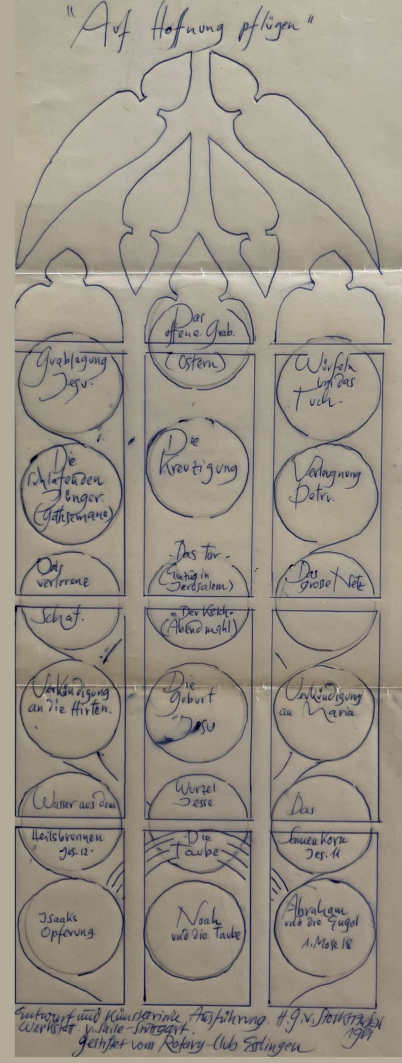 "Auf Hoffnung pflügen"
Das
offene Grab.
(Ostern)
Grablegung
Jesu.
Würfeln
um das
Tuch.
Die
schlafenden
Jünger
(Gethsemane)
Die
Kreuzigung
Verleugnung
Petru.
Das
verlorene
Schaf.
Das Tor
(Einzug in
Jerusalem)
Das
grosse Netz
Der Kelch
(Abendmahl)
Verkündigung
an die Hirten.
Die
Geburt
Jesu
Verkündigung
an Maria
Wasser aus dem
Heilsbrunnen
Jes. 12.
Wurzel
Jesse
Das
Jes. 11
Die
Taube
Isaaks
Opferung
Noah
und die Taube
Abraham
und die Engel
1. Mose 18
Entwurf und Künstlerische Ausführung H.G.v. Stockhausen
Werkstatt v. Saile-Stuttgart.
gestiftet vom Rotary-Club Esslingen.